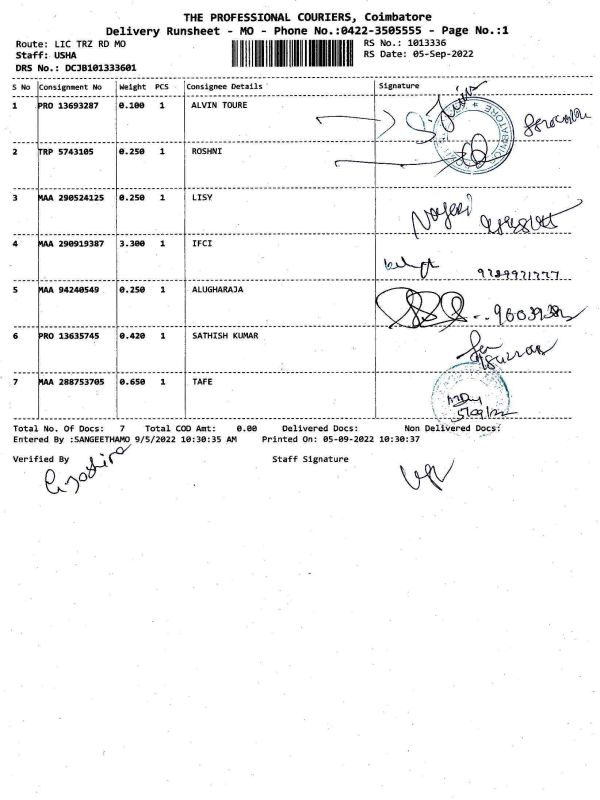 THE PROFESSIONAL COURIERS, Coimbatore
Delivery Runsheet - MO - Phone No.:0422-3505555 - Page No.:1
Route: LIC TRZ RD MO RS No.: 1013336
Staff: USHA RS Date: 05-Sep-2022
DRS No.: DCJB101333601
S No Consignment No Weight PCS Consignee Details Signature
1 PRO 13693287 0.100 1 ALVIN TOURE
2 TRP 5743105 0.250 1 ROSHNI
3 MAA 290524125 0.250 1 LISY
4 MAA 290919387 3.300 1 IFCI
5 MAA 94240549 0.250 1 ALUGHARAJA
6 PRO 13635745 0.420 1 SATHISH KUMAR
7 MAA 288753705 0.650 1 TAFE
Total No. Of Docs: 7 Total COD Amt: 0.00 Delivered Docs: Non Delivered Docs:
Entered By :SANGEETHAMO 9/5/2022 10:30:35 AM Printed On: 05-09-2022 10:30:37
Verified By Staff Signature